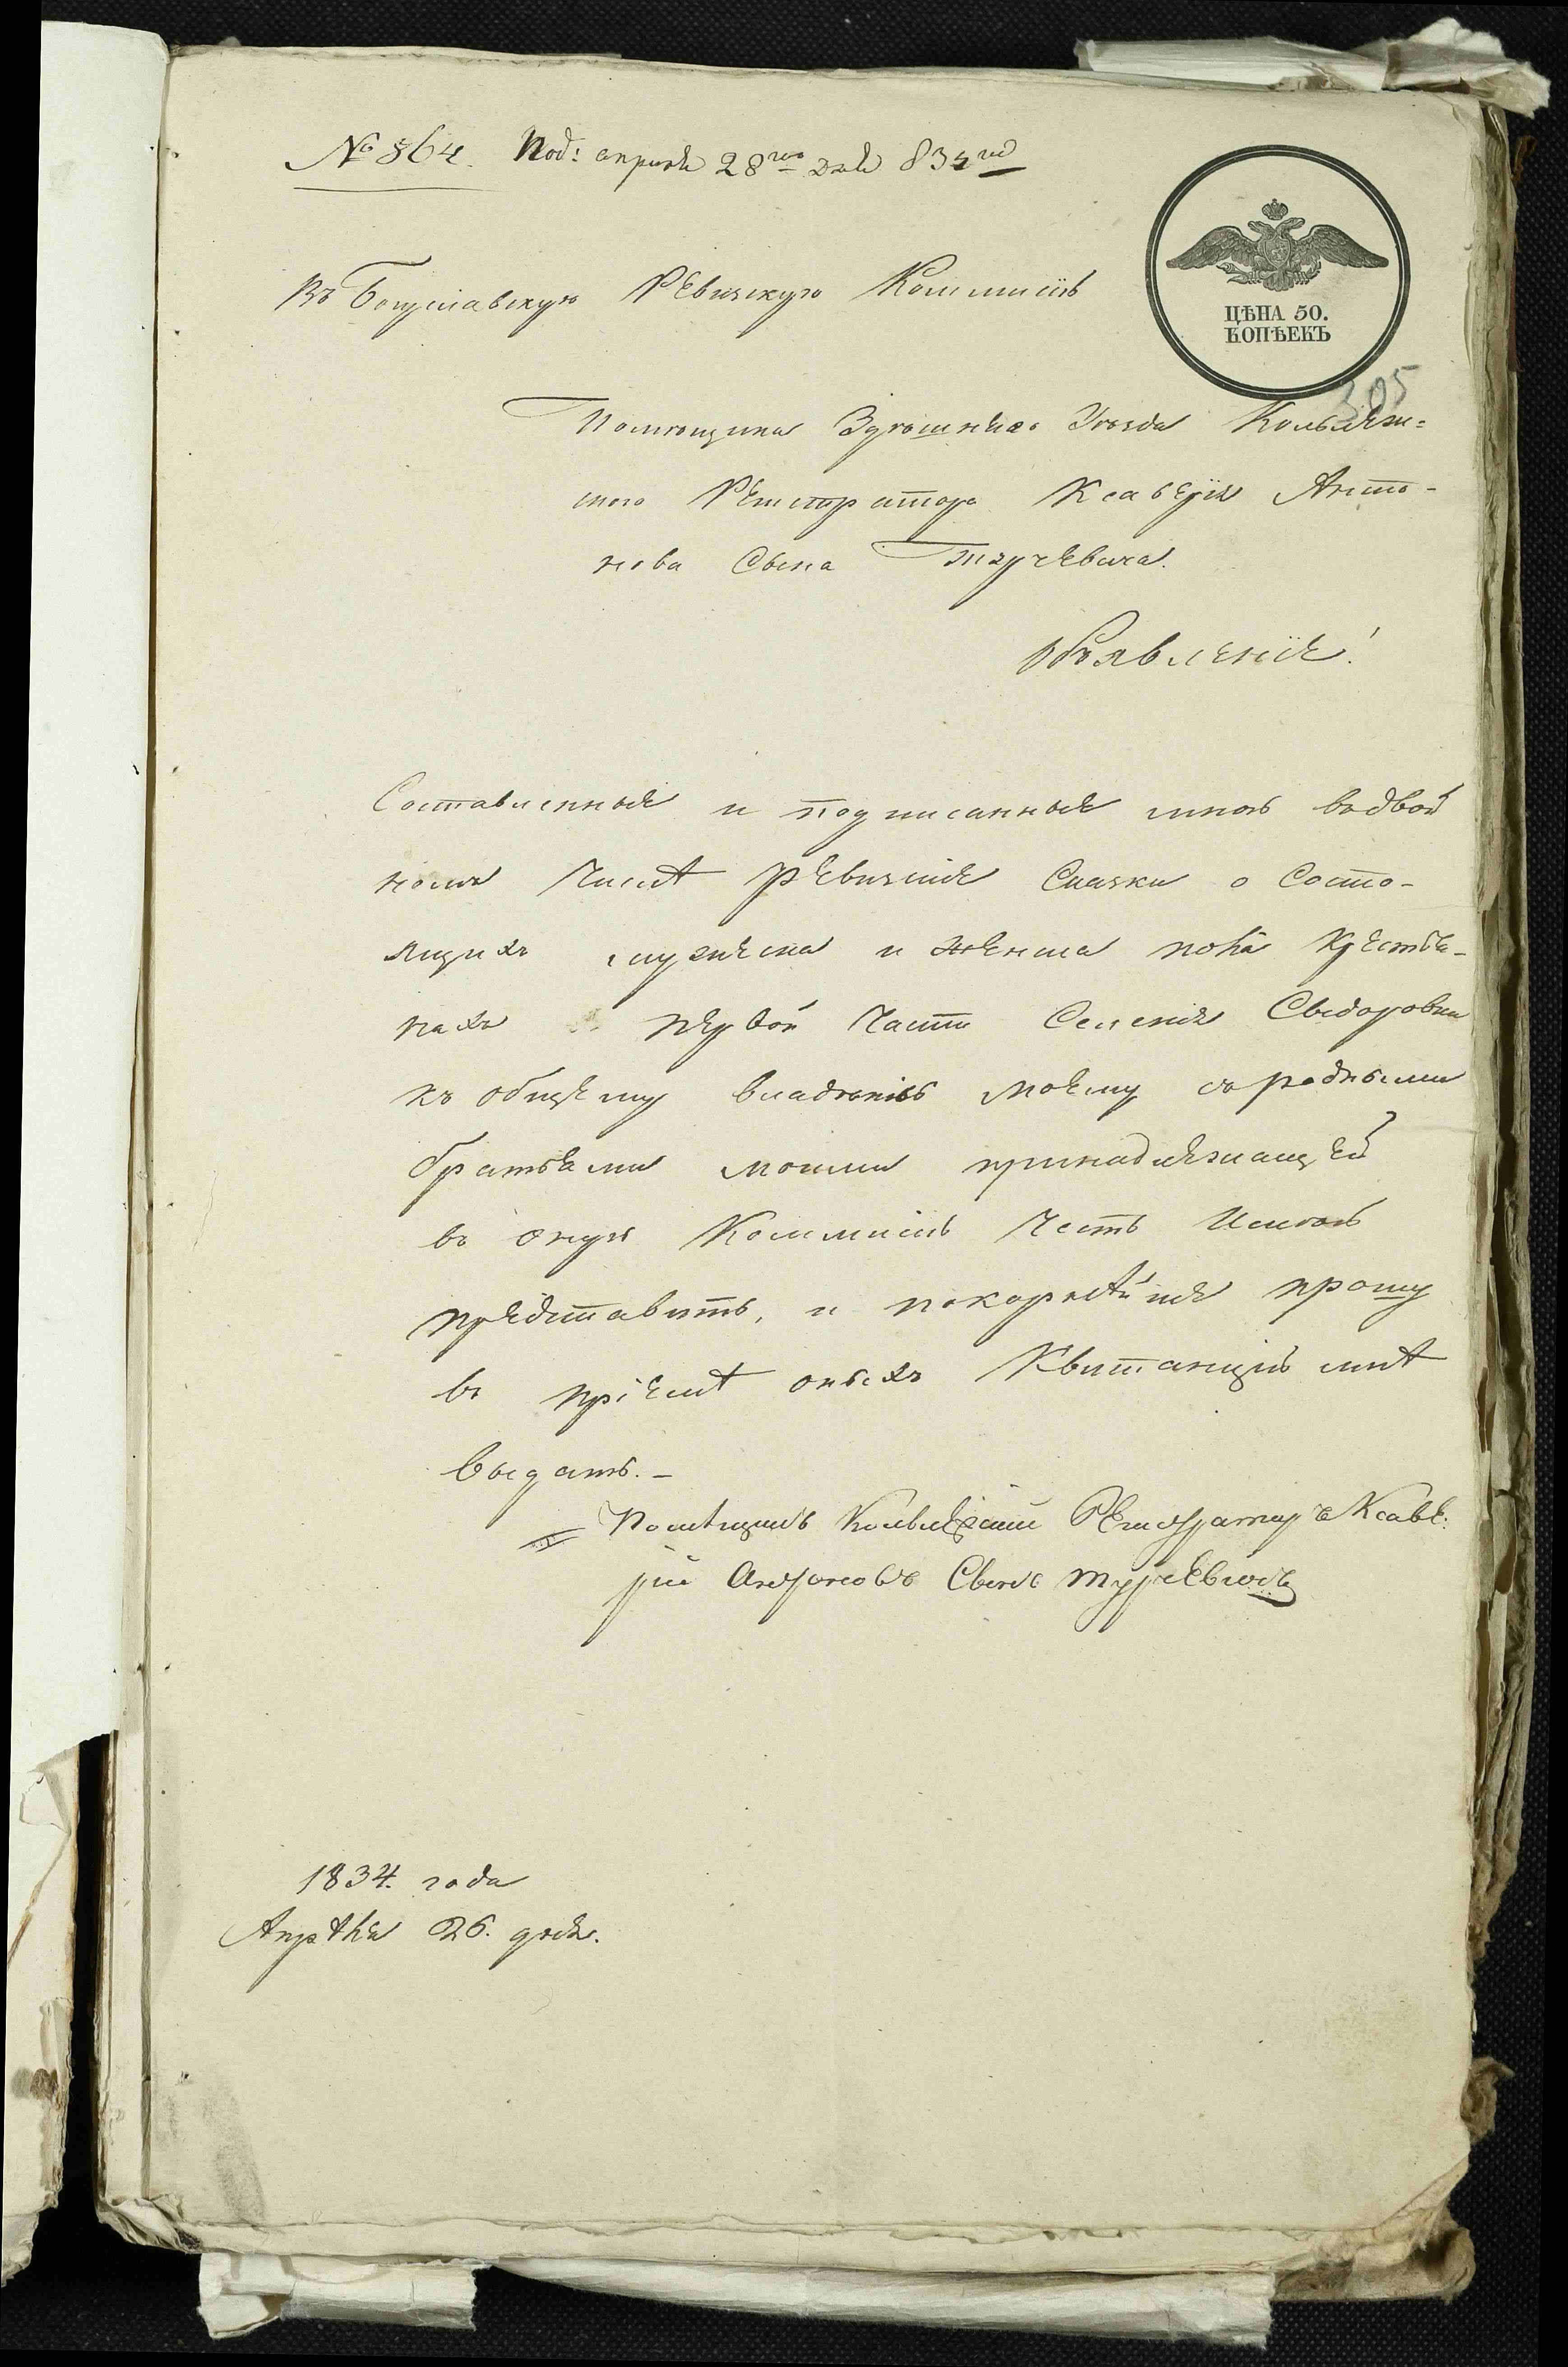 № 864. Под: апреля 28го дня 834 год
ЦѢНА 50.
КОПѢЕКЪ
305
Въ Богуславскую Ревизкую Коммисію
Помѣщика Здѣшнего Уѣзда Кольлеж=
ского Регистратора Ксаверія Анто-
нова Сына Турчевича.
Объявленіе!
Составленные и подписанные мною въ двой
номъ Числѣ ревизкіе Сказки о Состо-
ящихъ мужеска и женска пола Крестья-
нахъ первой Части Селенія Сыдоровки
къ общему владѣнію моему съ родными
братьями моими принадлежащей
въ оную Коммисію Честь Имѣю
представить, и покорнѣйше прошу
въ пріемѣ оныхъ Квитанцію мнѣ
выдать. -
Помѣщикъ Кольлежскии Регистраторъ Ксаве:
рiи Антоновъ Сынъ Турчевичъ
1834. года
Апрѣля 26. дня.